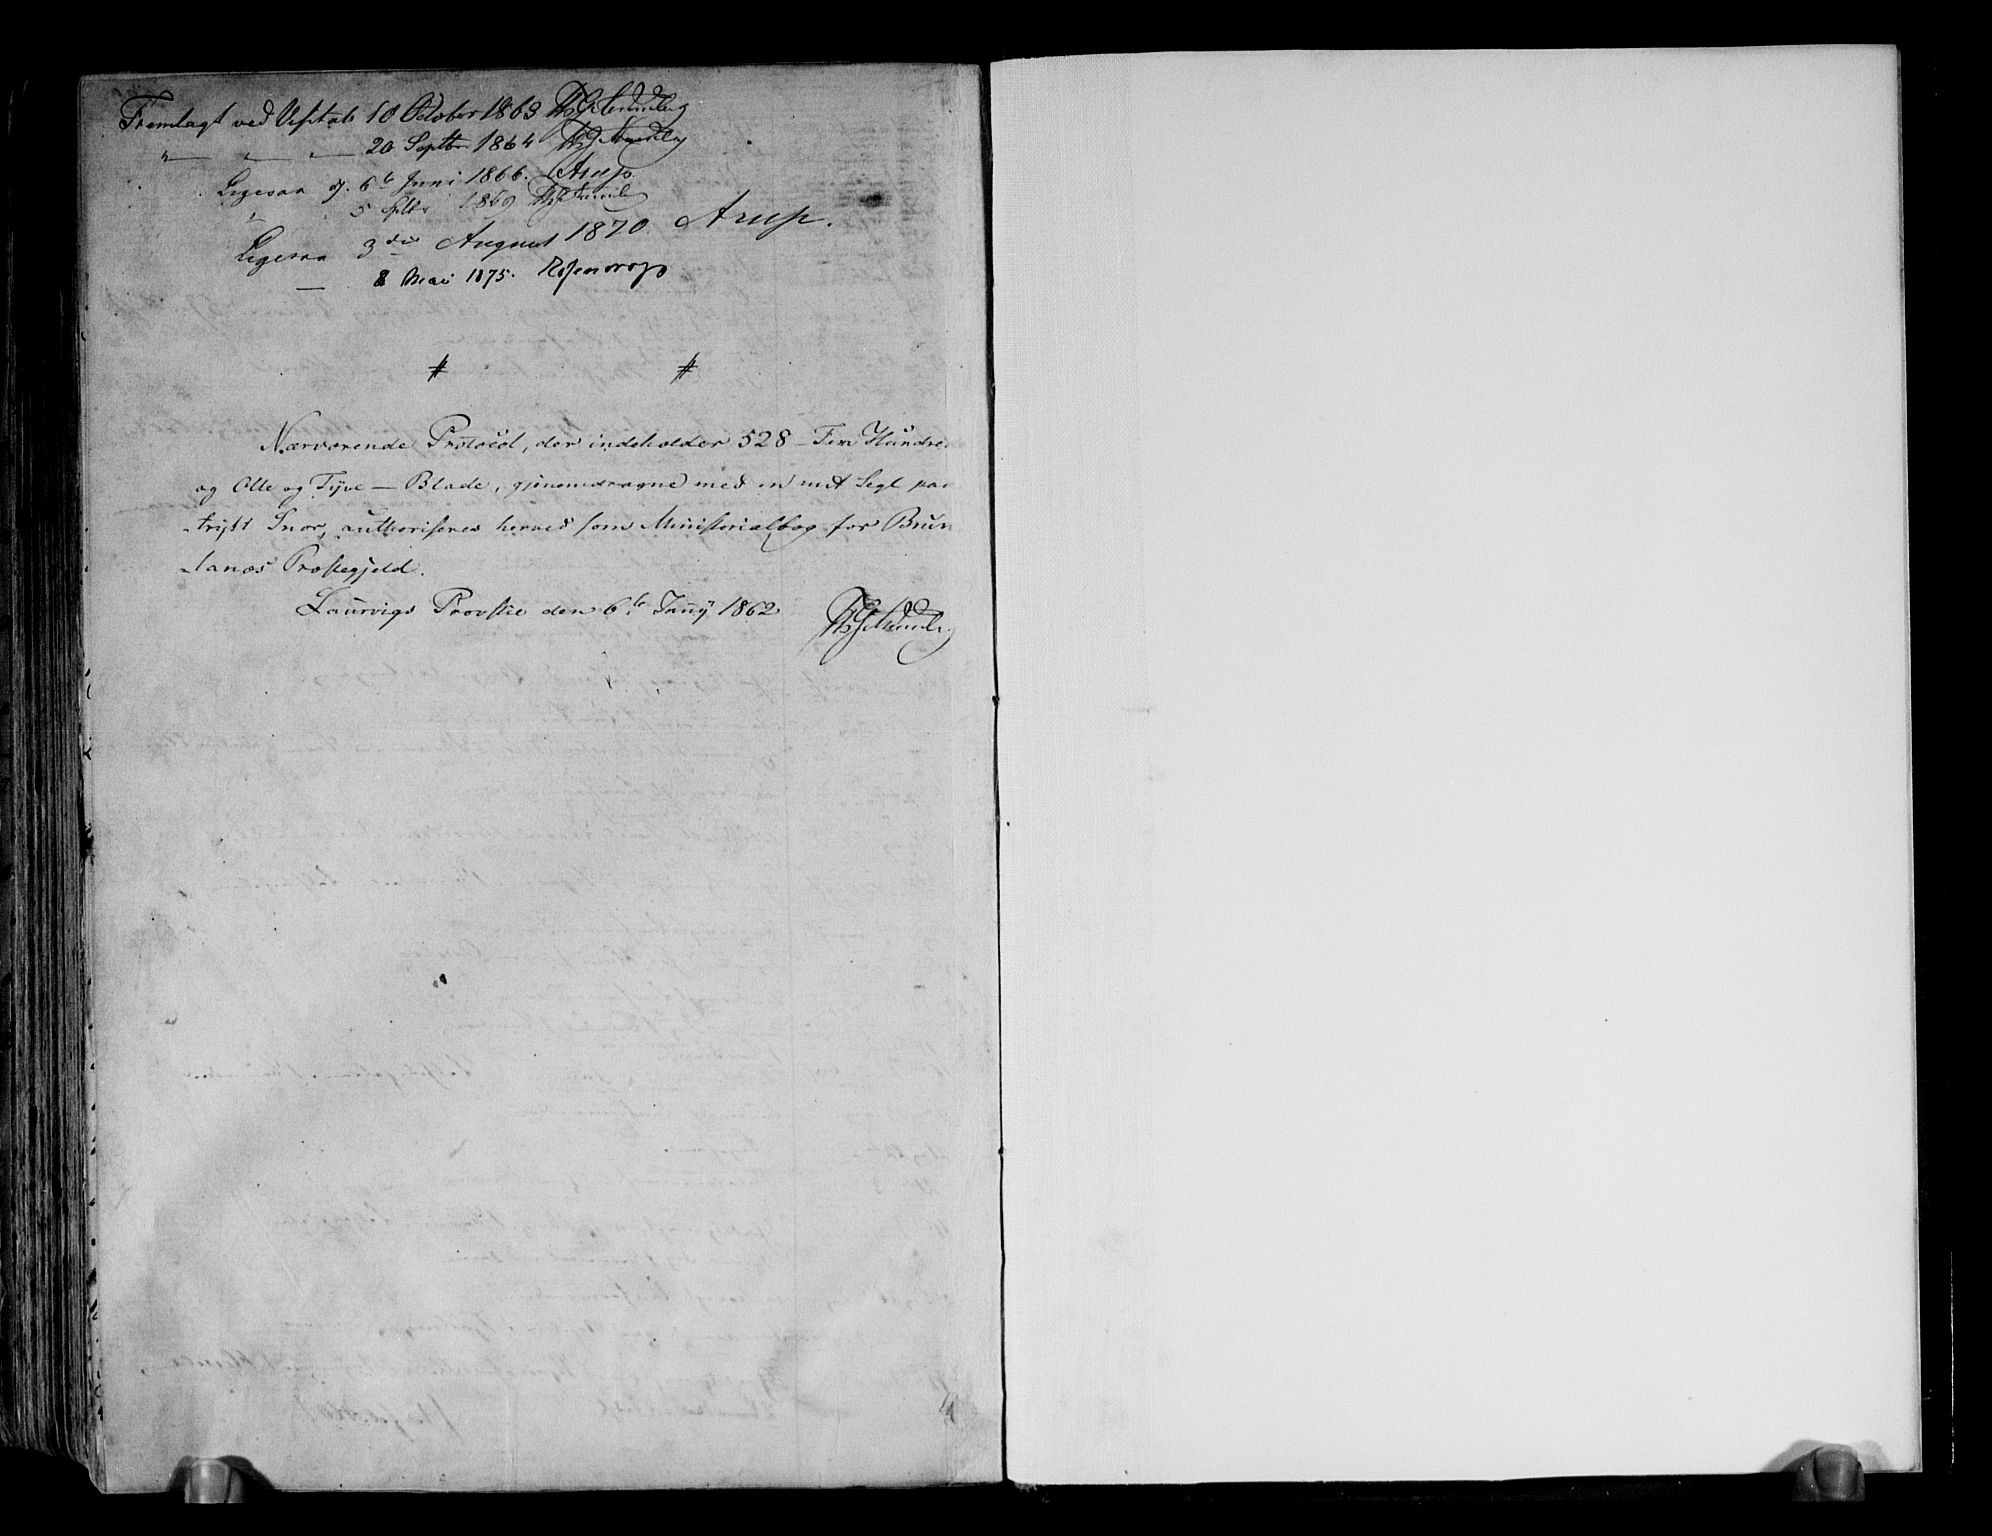 Fremlagt ved Visitats 18 October 1863
" — — — 20 Septbr 1864
Ligesaa d. 6te Juni 1866. Arup.
" " 5 Septbr 1869
Ligesaa 3die August 1870. Arup.
— 8 Mai 1875.
# #
Nærværende Protocol, der indeholder 528 – Fem Hundrede
og Otte og Tyve — Blade, gjennemdragne med en mit Segl paa
-trykt Snor, authoriseres herved som Ministerialbog for Brun
-lanæs Præstegjeld.
Laurvigs Provstie den 6te Juny 1862